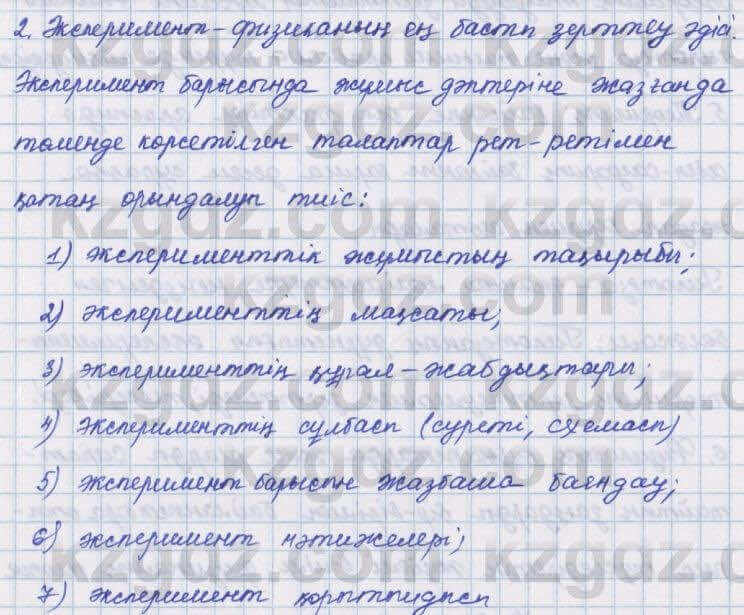 2. Эксперимент - физиканың ең басты зерттеу әдісі.
Эксперимент барысында жұмыс дәптеріне жазғанда
төменде көрсетілген талаптар рет-ретімен
қатаң орындалуы тиіс:
1) эксперименттік жұмыстың тақырыбы;
2) эксперименттің мақсаты;
3) эксперименттің құрал-жабдықтары;
4) Эксперименттің сұлбасы (суреті, схемасы)
5) эксперимент барысын жазбаша баяндау;
6) эксперимент нәтижелері;
7) эксперимент қорытындысы
kzgdz.com